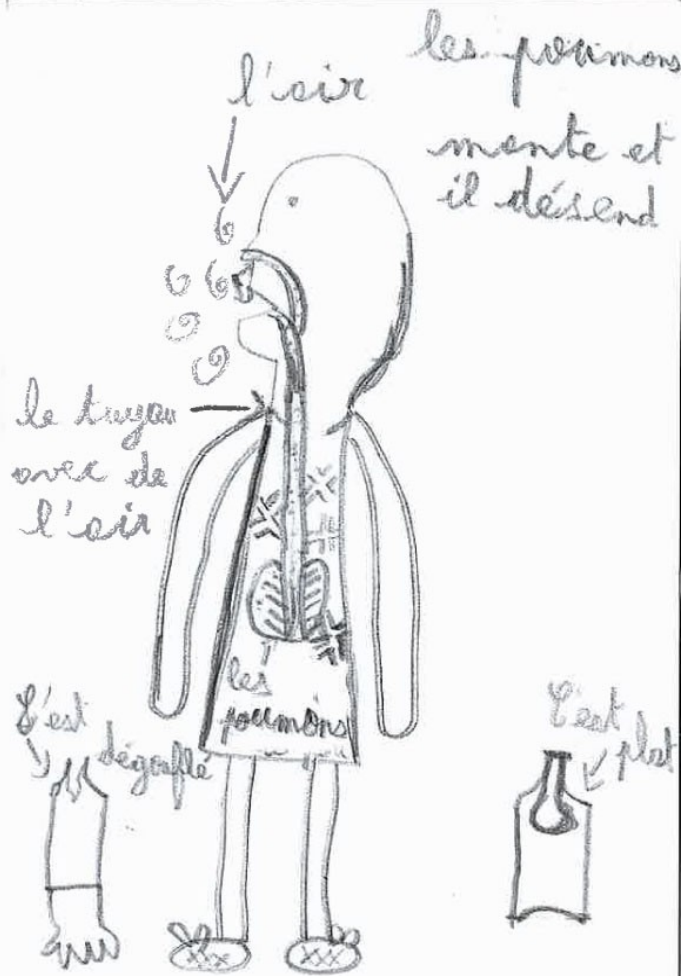 l'air
les poumons
monte et
il désend
le tuyau
avec de
l'air
les
poumons
C'est
dégonflé
C'est
plat